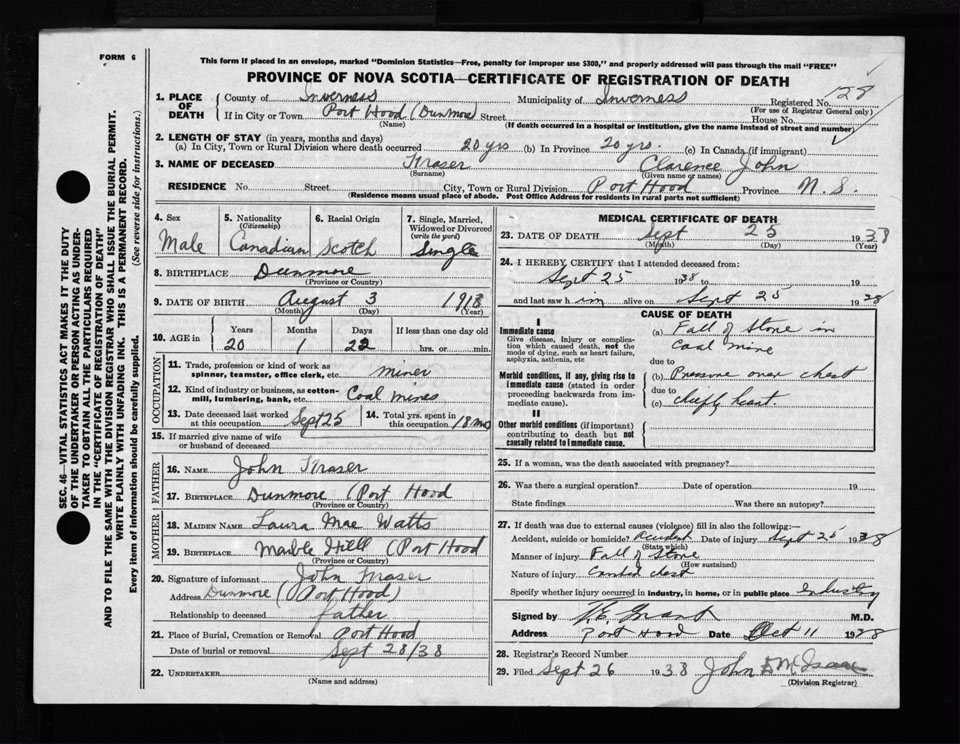 FORM 6
This form if placed in an envelope, marked "Dominion Statistics—Free, penalty for improper use $300," and properly addressed will pass through the mail "FREE"
PROVINCE OF NOVA SCOTIA—CERTIFICATE OF REGISTRATION OF DEATH
SEC. 46—VITAL STATISTICS ACT MAKES IT THE DUTY
OF THE UNDERTAKER OR PERSON ACTING AS UNDER-
TAKER TO OBTAIN ALL THE PARTICULARS REQUIRED
IN THE "CERTIFICATE OF REGISTRATION OF DEATH"
AND TO FILE THE SAME WITH THE DIVISION REGISTRAR WHO SHALL ISSUE THE BURIAL PERMIT.
WRITE PLAINLY WITH UNFADING INK. THIS IS A PERMANENT RECORD.
Every item of information should be carefully supplied. (See reverse side for instructions.)
1. PLACE OF DEATH County of Inverness Municipality of Inverness Registered No. 128
(For use of Registrar General only)
If in City or Town Port Hood (Dunmore) Street House No.
(Name) (If death occurred in a hospital or institution, give the name instead of street and number)
2. LENGTH OF STAY (in years, months and days)
(a) In City, Town or Rural Division where death occurred 20 yrs (b) In Province 20 yrs. (c) In Canada (if immigrant)
3. NAME OF DECEASED Fraser Clarence John
(Surname) (Given name or names)
RESIDENCE No. Street City, Town or Rural Division Port Hood Province N. S.
(Residence means usual place of abode. Post Office Address for residents in rural parts not sufficient)
4. Sex Male
5. Nationality (Citizenship) Canadian
6. Racial Origin Scotch
7. Single, Married, Widowed or Divorced (write the word) Single
8. BIRTHPLACE Dunmore
(Province or Country)
9. DATE OF BIRTH August 3 1918
(Month) (Day) (Year)
10. AGE in Years 20 Months 1 Days 22 If less than one day old hrs. or min.
OCCUPATION
11. Trade, profession or kind of work as spinner, teamster, office clerk, etc. miner
12. Kind of industry or business, as cotton-mill, lumbering, bank, etc. Coal mines
13. Date deceased last worked at this occupation Sept 25
14. Total yrs. spent in this occupation 18 mos
15. If married give name of wife or husband of deceased
FATHER
16. NAME John Fraser
17. BIRTHPLACE Dunmore (Port Hood
(Province or Country)
MOTHER
18. MAIDEN NAME Laura Mae Watts
19. BIRTHPLACE Marble Hill (Port Hood
(Province or Country)
20. Signature of informant John Fraser
Address Dunmore (Port Hood)
Relationship to deceased father
21. Place of Burial, Cremation or Removal Port Hood
Date of burial or removal Sept 28/38
22. UNDERTAKER
(Name and address)
MEDICAL CERTIFICATE OF DEATH
23. DATE OF DEATH Sept 25 1938
(Month) (Day) (Year)
24. I HEREBY CERTIFY that I attended deceased from:
Sept 25 1938 to 19
and last saw him alive on Sept 25 1938
CAUSE OF DEATH
I
Immediate cause
Give disease, injury or complication which caused death, not the mode of dying, such as heart failure, asphyxia, asthenia, etc
(a) Fall of Stone in
Coal mine
due to
Morbid conditions, if any, giving rise to immediate cause (stated in order proceeding backwards from immediate cause).
(b) Pressure over chest
due to
(c) chiefly heart.
II
Other morbid conditions (if important) contributing to death but not causally related to immediate cause.
25. If a woman, was the death associated with pregnancy?
26. Was there a surgical operation? Date of operation 19
State findings Was there an autopsy?
27. If death was due to external causes (violence) fill in also the following:—
Accident, suicide or homicide? Accident Date of injury Sept 25 1938
(State which)
Manner of injury Fall of Stone
(How sustained)
Nature of injury Crushed chest
Specify whether injury occurred in industry, in home, or in public place Industry
Signed by Grant M.D.
Address Port Hood Date Oct 11 1938
28. Registrar's Record Number
29. Filed Sept 26 1938 John McIsaac
(Division Registrar)